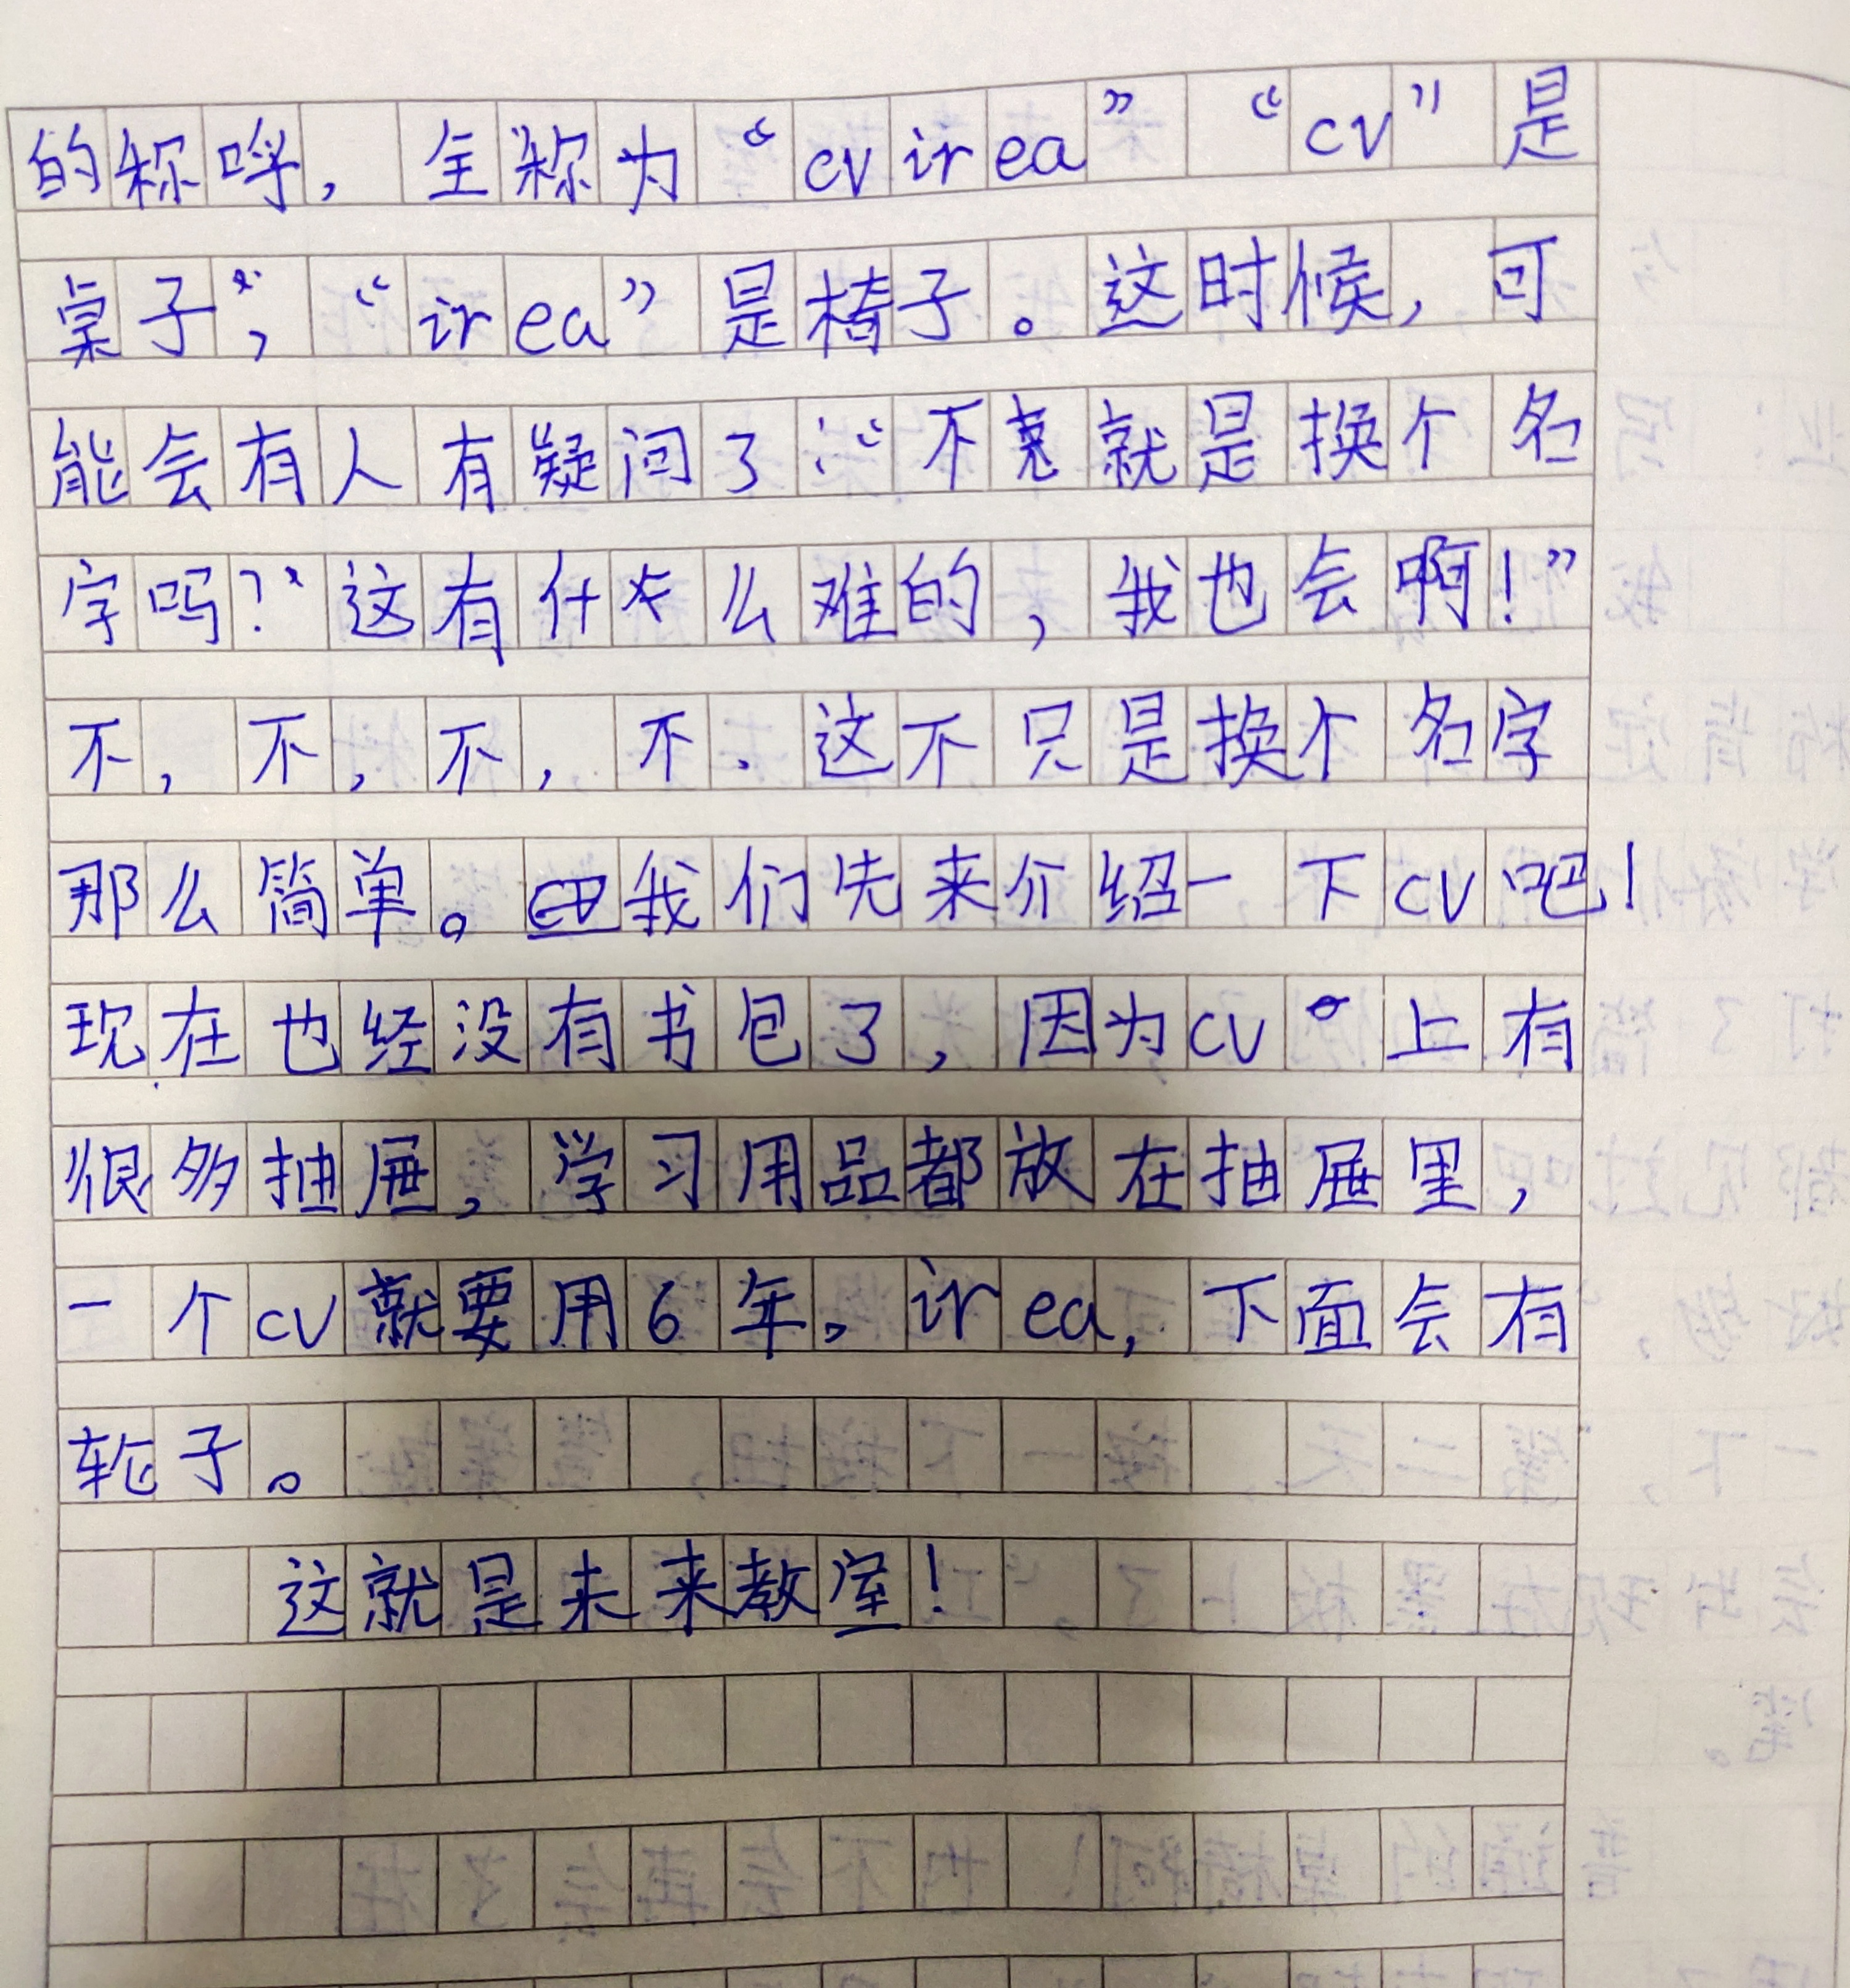 的称呼，全称为“cv irea”“cv”是
桌子“；“irea”是椅子。这时候，可
能会有人有疑问了：“不竟就是换个名
字吗？”这有什么难的，我也会啊！”
不，不，不，不、这不只是换个名字
那么简单。我们先来介绍一下cv吧！
现在也经没有书包了，因为cv上有
很多抽屉，学习用品都放在抽屉里，
一个cv就要用6年。irea，下面会有
轮子。
这就是未来教室！